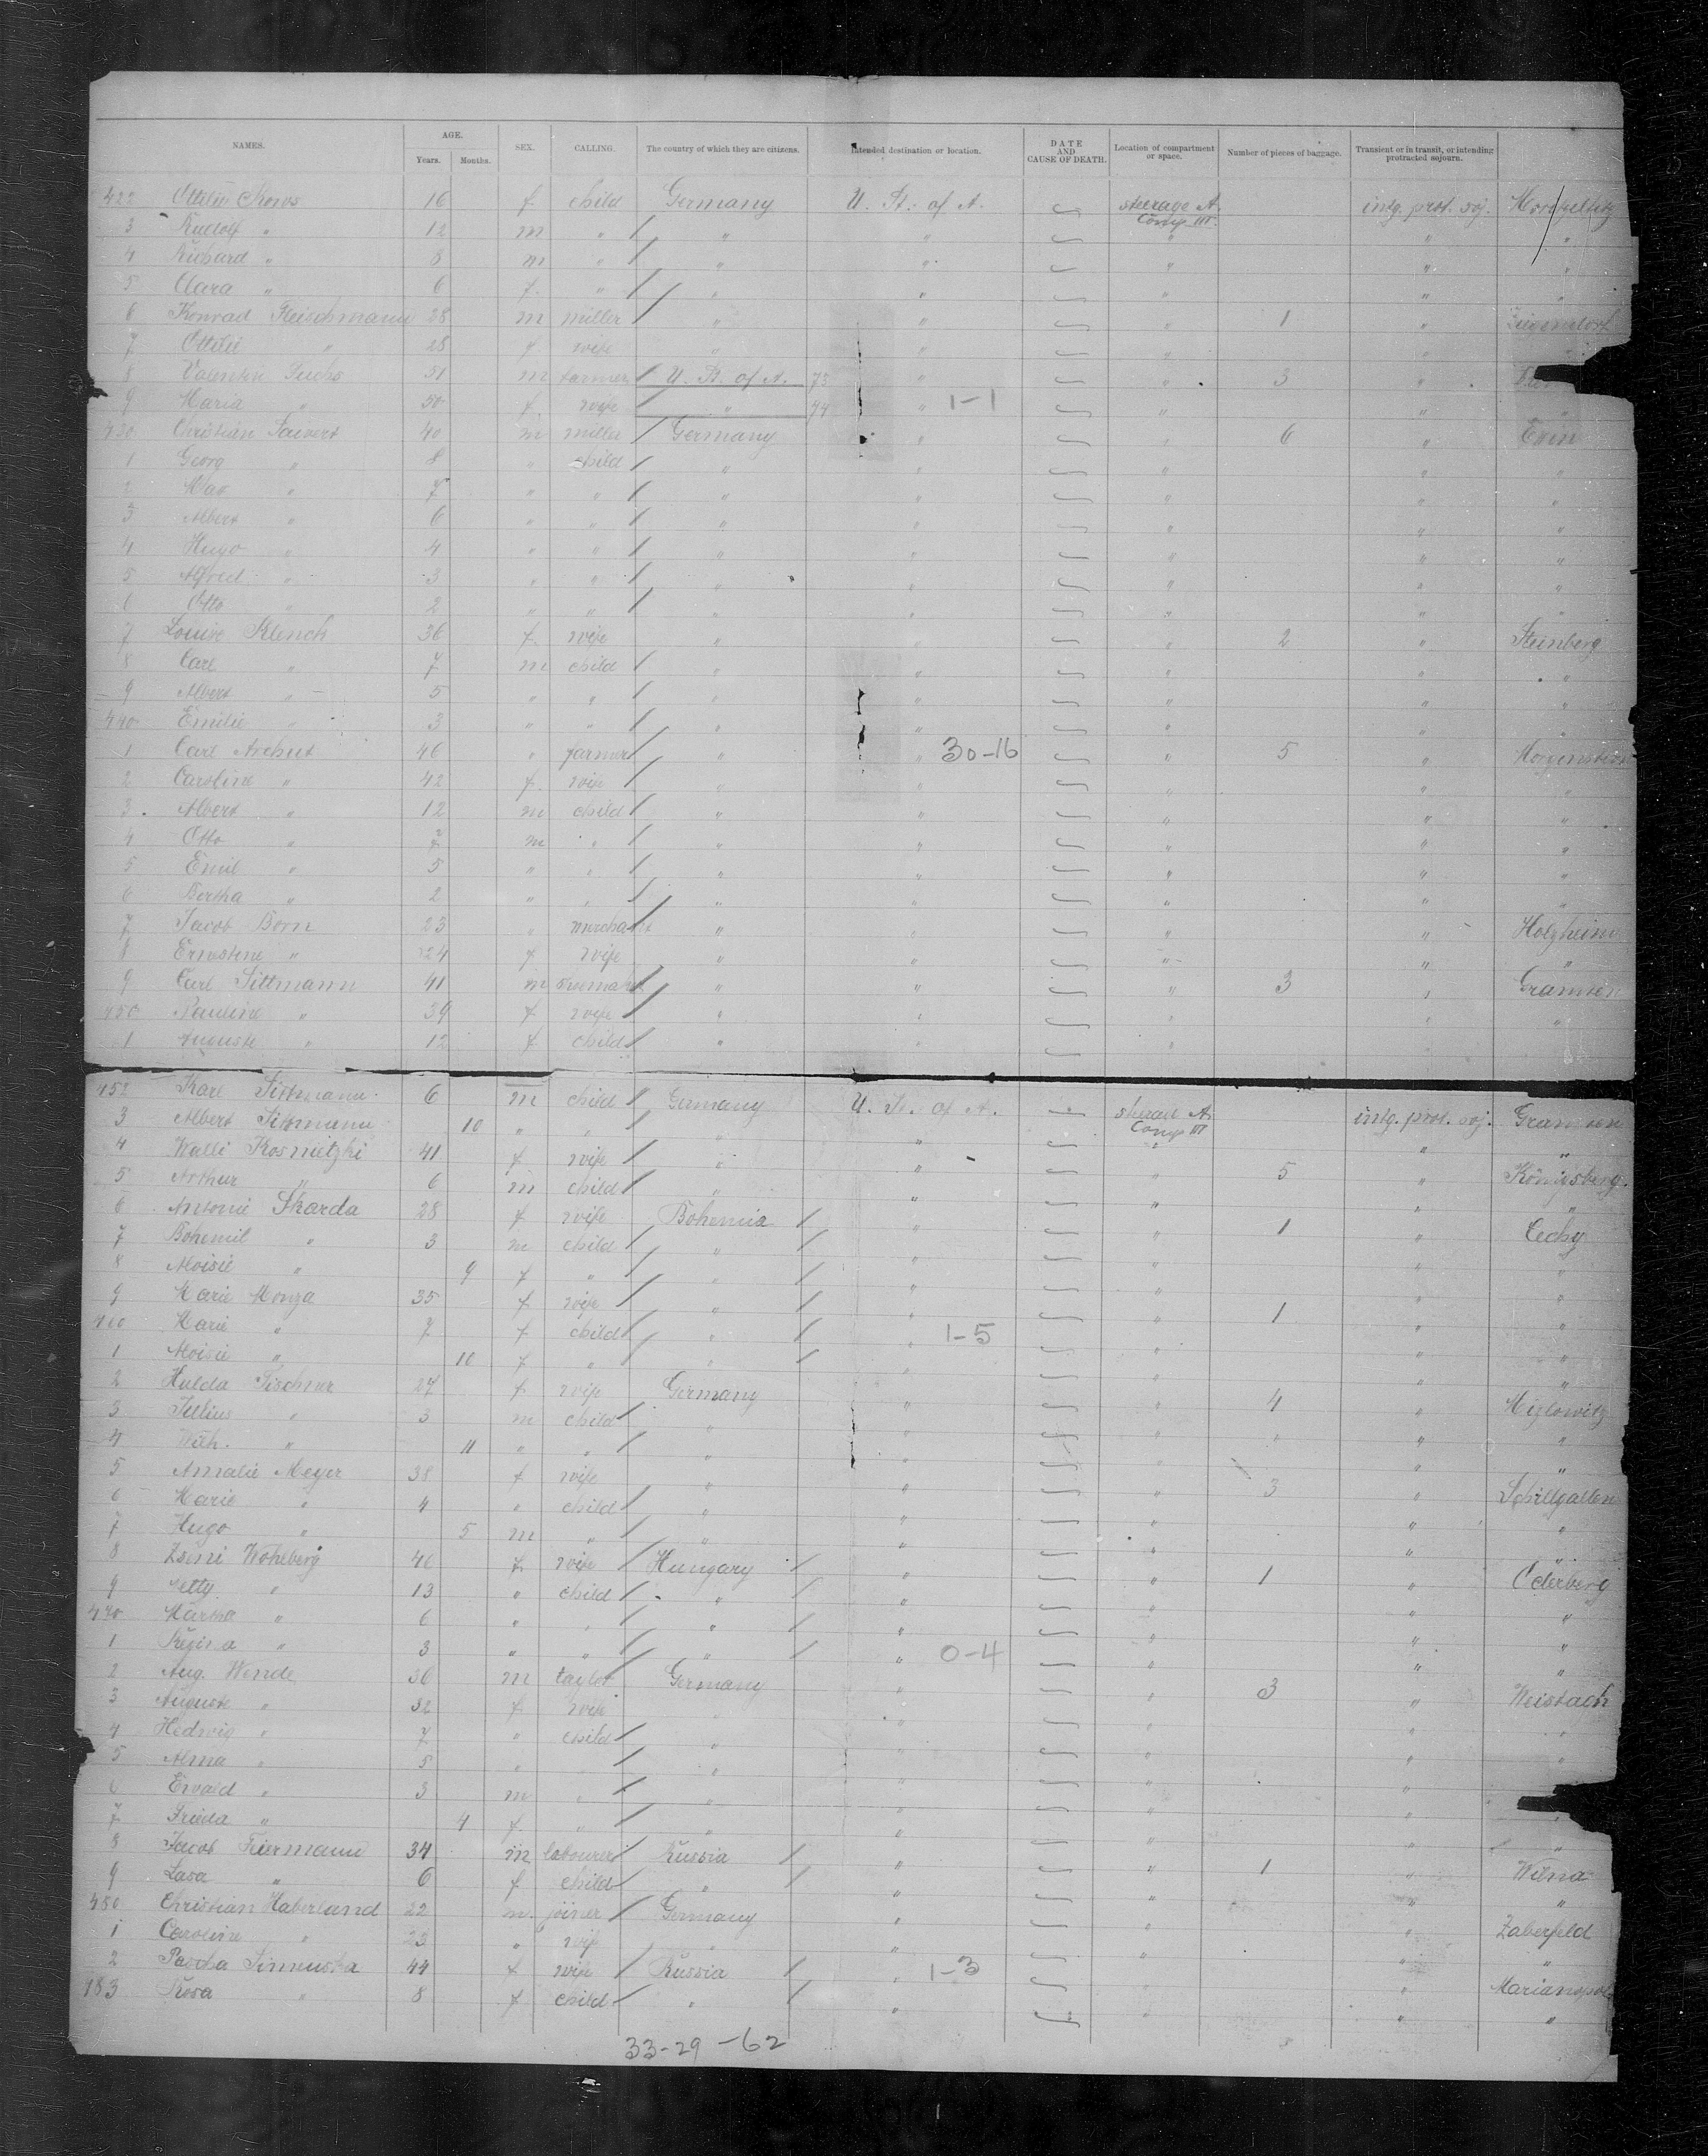 NAMES. AGE. Years. Months. SEX. CALLING. The country of which they are citizens. Intended destination or location. DATE AND CAUSE OF DEATH. Location of compartment or space. Number of pieces of baggage. Transient or in transit, or intending protracted sojourn.
422 Ottilie 16 f. child Germany U. St. of A. steerage A. Comp III. intg. prot. soj.
3 Rudolf " 12 m " " " " " "
4 Richard " 8 m " " " " " "
5 Clara " 6 f. " " " " " "
6 Konrad Fleischmann 28 m miller " " " 1 "
7 Ottilie " 28 f wife " " " " "
8 Valentin Fuchs 51 m farmer U. St. of A. 73 " " 3 "
9 Maria " 50 f. wife " 74 " 1-1 " " "
430 Christian 40 m miller Germany " " 6 " Exin
1 Georg " 8 " child " " " " "
2 Max " 7 " " " " " " "
3 Albert " 6 " " " " " " "
4 Hugo " 4 " " " " " " "
5 Alfred " 3 " " " " " " "
6 Otto " 2 " " " " " " "
7 Louise Klench 36 f. wife " " " 2 " Steinberg
8 Carl " 7 m child " " " " "
9 Albert " 5 " " " " " " "
440 Emilie " 3 " " " " " " "
1 Carl 46 " farmer " " 30-16 " 5 "
2 Caroline " 42 f. wife " " " " "
3 Albert " 12 m child " " " " "
4 Otto " 7 m " " " " " "
5 Emil " 5 " " " " " " "
6 Bertha " 2 " " " " " " "
7 Jacob Born 23 " merchant " " " " Holzheim
8 Ernestine " 24 f wife " " " " "
9 Carl Sittmann 41 m " " " 3 " Gramsen
450 Pauline " 39 f wife " " " " "
1 Auguste " 12 f child " " "
452 Karl Sittmann 6 m child Germany U. St. of A. steerage A. Comp III intg. prot. soj. Gramsen
3 Albert Sittmann 10 " " " " " " "
4 Walli Kosnietzki 41 f wife " " " 5 " Königsberg.
5 Arthur " 6 m child " " " " "
6 Antonie Skarda 28 f wife Bohemia " " 1 " Cechy
7 Bohemil " 3 m child " " " " "
8 Aloisie " 9 f " " " " " "
9 Marie 35 f wife " " " 1 " "
460 Marie " 7 f child " " 1-5 " " "
1 Aloisie " 10 f " " " " " "
2 Hulda Tischner 27 f wife Germany " " 4 " Mizlowitz
3 Julius " 3 m child " " " " " "
4 Wilh. " 11 " " " " " " "
5 Amalie Meyer 38 f wife " " " 3 " Schillgallen
6 Marie " 4 " child " " " " "
7 Hugo " 5 m " " " " " "
8 Wohlberg 46 f wife Hungary " " 1 " Oderberg
9 Netty " 13 " child " " " " "
470 Martha " 6 " " " " " " "
1 Regina " 3 " " " " 0-4 " " "
2 Aug. Wende 36 m taylor Germany " " 3 " Weisbach
3 Auguste " 32 f wife " " " " "
4 Hedwig " 7 " child " " " " "
5 Alma " 5 " " " " " " "
6 Ewald " 3 m " " " " "
7 Frieda " 4 f. " " " " " "
8 Jacob Feiermann 34 m labourer Russia " " 1 " Wilna
9 Lasa " 6 f child " " " " "
480 Christian Haberland 22 m. joiner Germany " " " Zaberfeld
1 Caroline " 23 " wife " " " " "
2 44 f wife Russia " 1-3 " " Marianopol
483 Rosa " 8 f child " " " " "
33-29-62